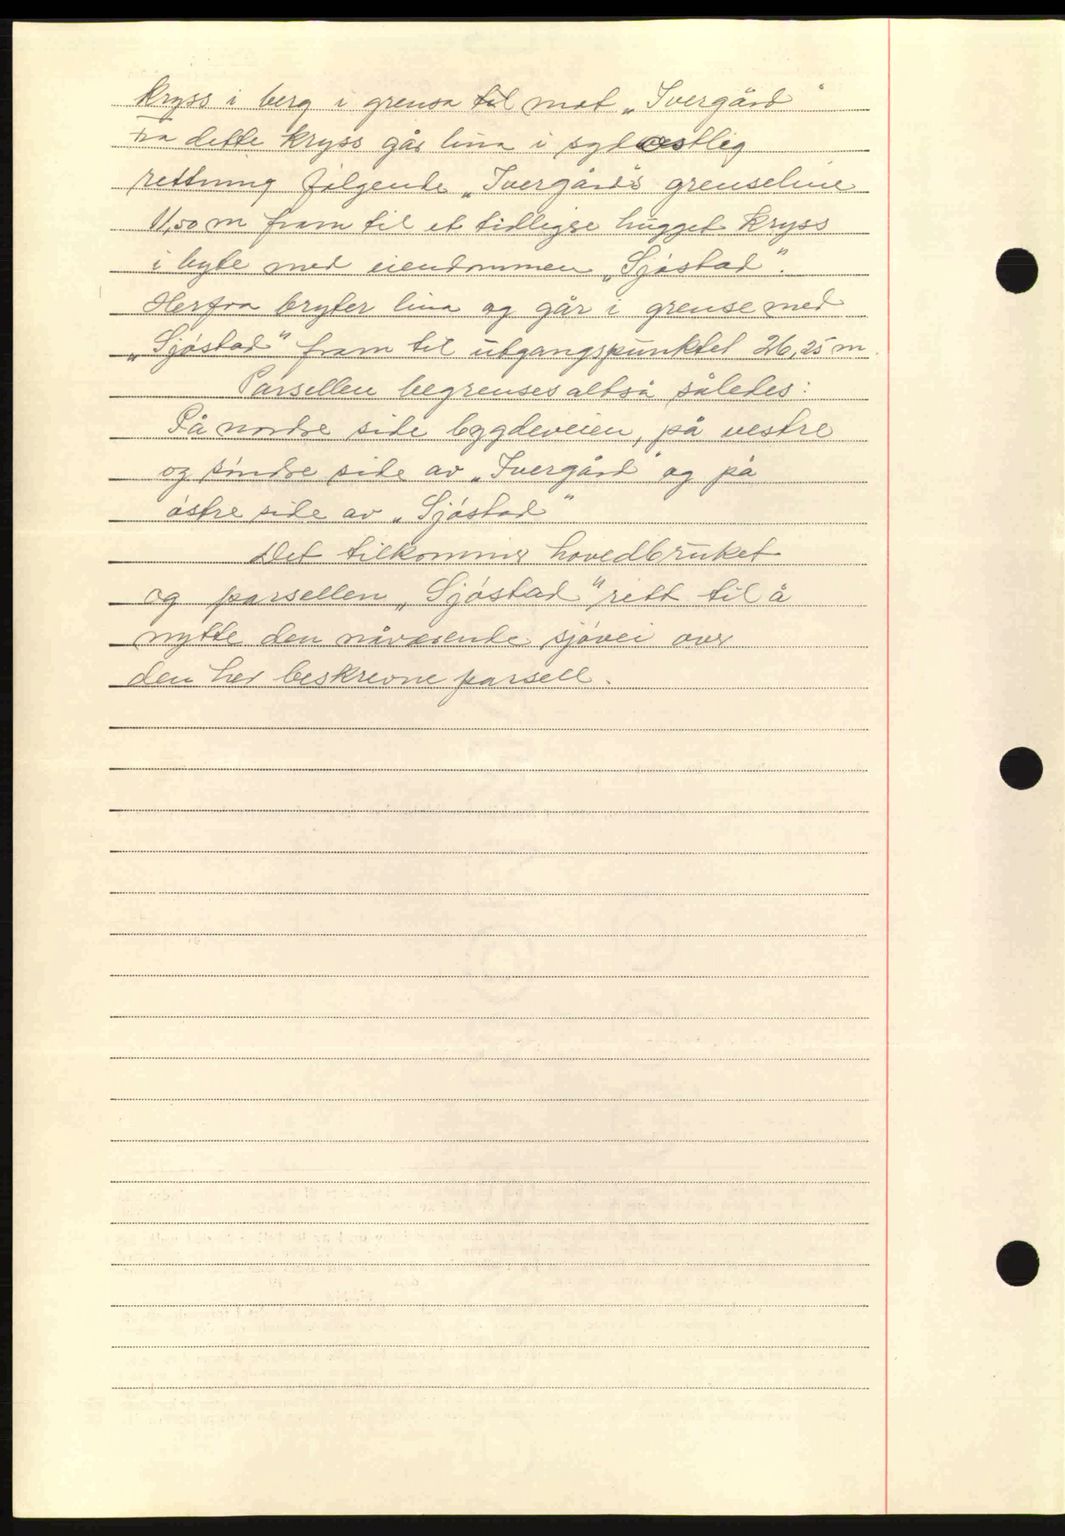 kryss i berg i grensa til mot „Ivergård"
Fra dette kryss går lina i sydvestlig
rettning følgende „Ivergård's grenseline
11,50 m fram til et tidligere hugget kryss
i byte med eiendommen „Sjøstad".
Herfra bryter lina og går i grense med
„Sjøstad" fram til utgangspunktet 26,25 m.
Parsellen begrenses altså således:
På nordre side bygdeveien, på vestre
og søndre side av „Ivergård" og på
østre side av „Sjøstad"
Det tilkommer hovedbruket
og parsellen „Sjøstad" rett til å
nytte den nåværende sjøvei over
den her beskrevne parsell.